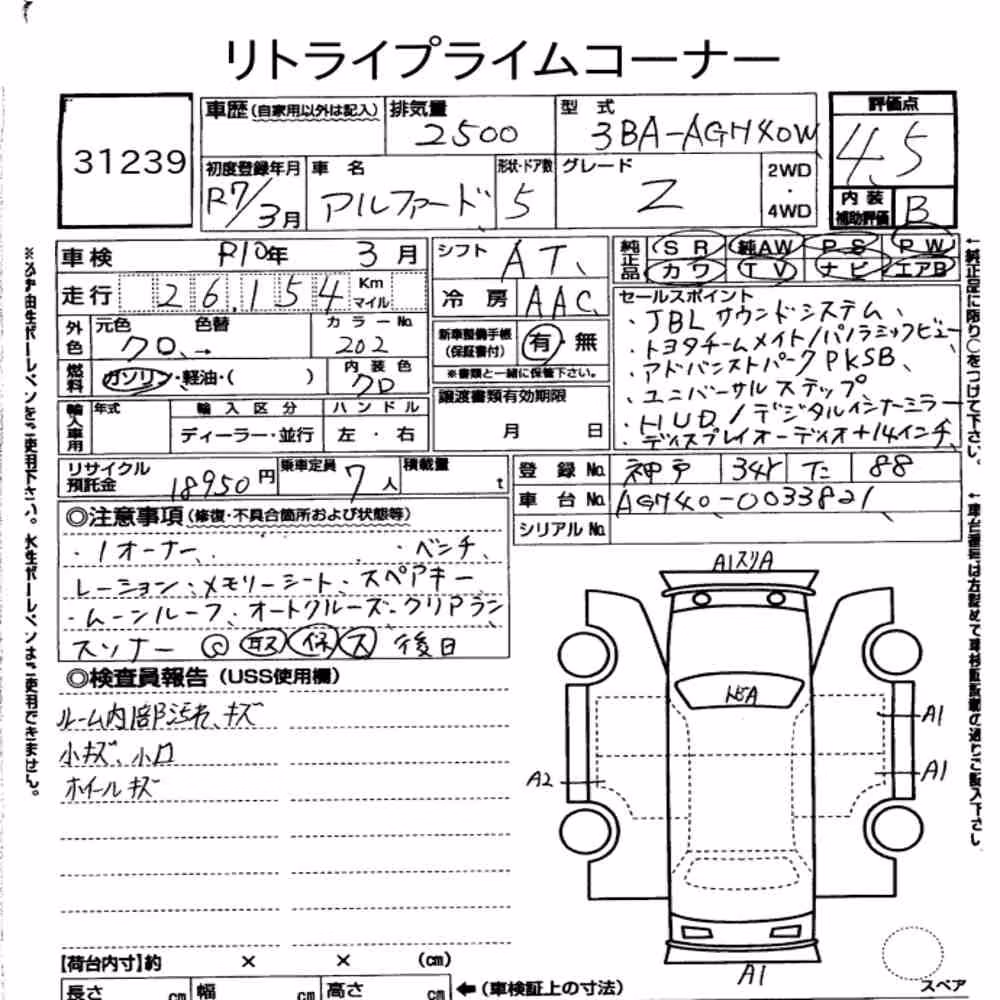 リトライプライムコーナー
31239
車歴 (自家用以外は記入)
排気量
2500
型式
3BA-AGH40W
評価点
4.5
初度登録年月
R7/3月
車名
アルファード
形状・ドア数
5
グレード
Z
2WD
・
4WD
内装
補助評価
B
車検 R10年 3月
シフト
AT、
純正品
SR 純AW PS PW
カワ TV ナビ エアB
走行 26,154 Km マイル
冷房
AAC
セールスポイント
・JBLサウンドシステム、
・トヨタチームメイト/パノラミックビュー
・アドバンストパークPKSB、
・ユニバーサルステップ
・HUD/デジタルインナーミラー
・ディスプレイオーディオ+14インチ、
外色
元色 色替
クロ、→
カラーNo.
202
新車整備手帳
(保証書付)
有・無
※書類と一緒に保管下さい。
燃料
ガソリン・軽油・( )
内装色
クロ
譲渡書類有効期限
月 日
輸入車用
年式
輸入区分
ディーラー・並行
ハンドル
左・右
リサイクル
預託金
18950円
乗車定員
7人
積載量
t
登録No.
神戸 345 た 88
車台No.
AGH40-0033821
シリアルNo.
◎注意事項(修復・不具合箇所および状態等)
・1オーナー、 ・ベンチ、
レーション・メモリーシート・スペアキー
・ムーンルーフ、オートクルーズ・クリアラン
スソナー 取 保 ス 後日
◎検査員報告(USS使用欄)
ルーム内部汚れ、キズ
小キズ、小凹
ホイールキズ
A1スリA
トビA
A1
A2
A1
A1
スペア
【荷台内寸】約 × × (cm)
長さ cm 幅 cm 高さ cm
←(車検証上の寸法)
※メデ油性ボールペンをご使用下さい。水性ボールペンはご使用できません。
←純正品に限り○をつけて下さい。